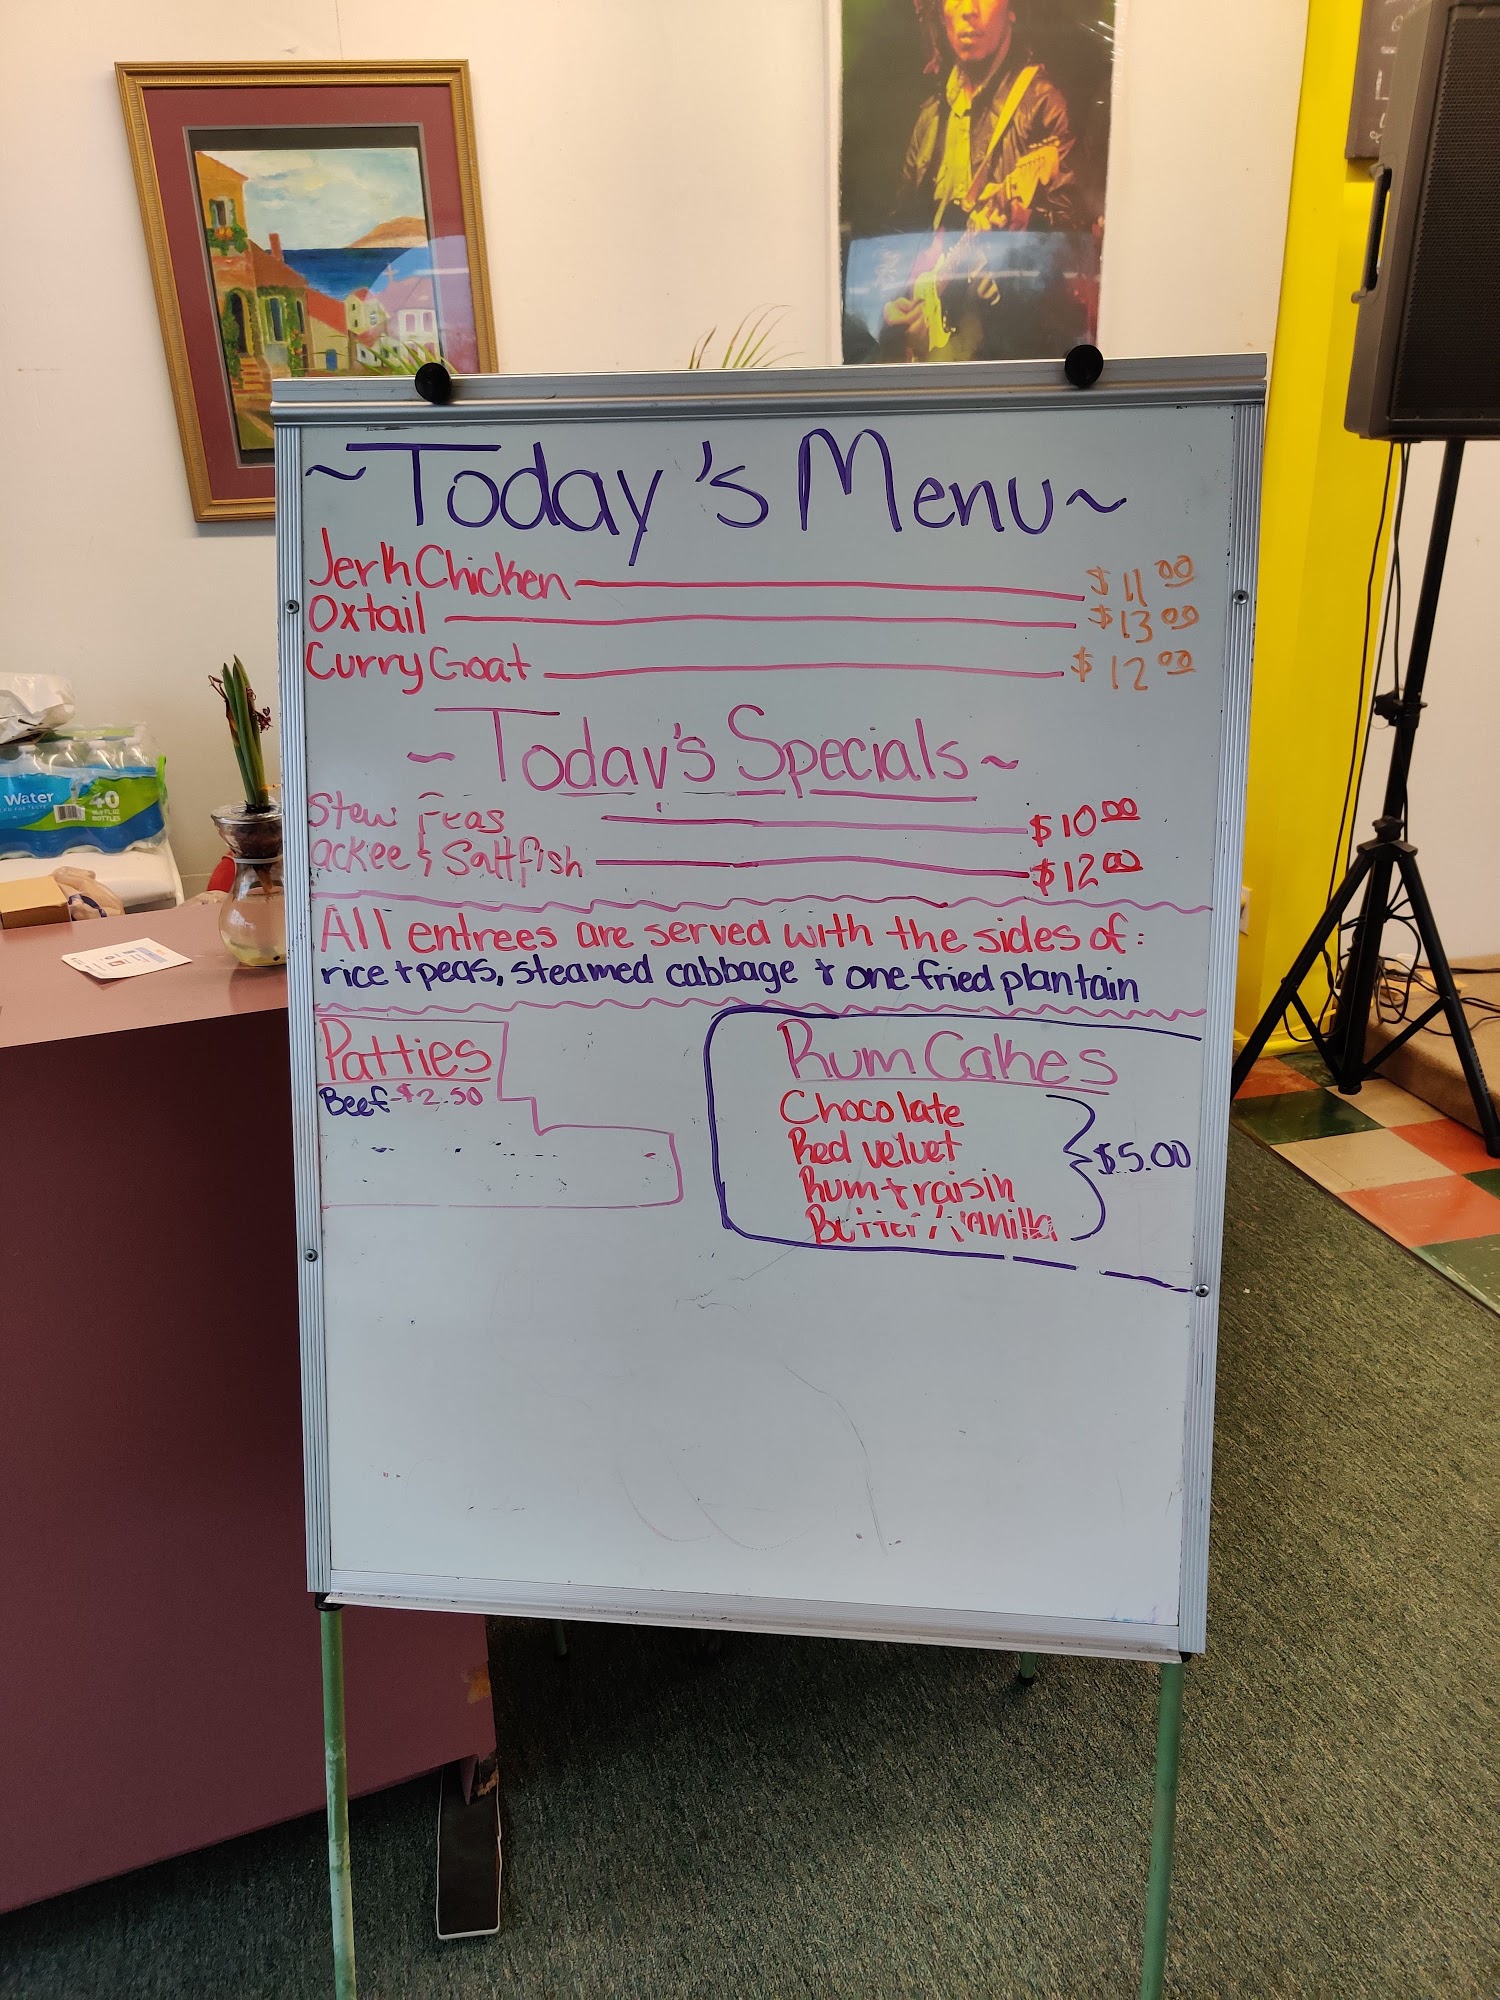 ~Today's Menu~
Jerk Chicken $11 00
Oxtail $13 00
Curry Goat $12 00
~Today's Specials~
Stew Peas $10 00
ackee & Saltfish $12 00
All entrees are served with the sides of:
rice + peas, steamed cabbage + one fried plantain
Patties
Beef-$2.50
Rum Cakes
Chocolate
Red velvet
Rum + raisin
Butter / vanilla
$5.00
Water
40
BOTTLES